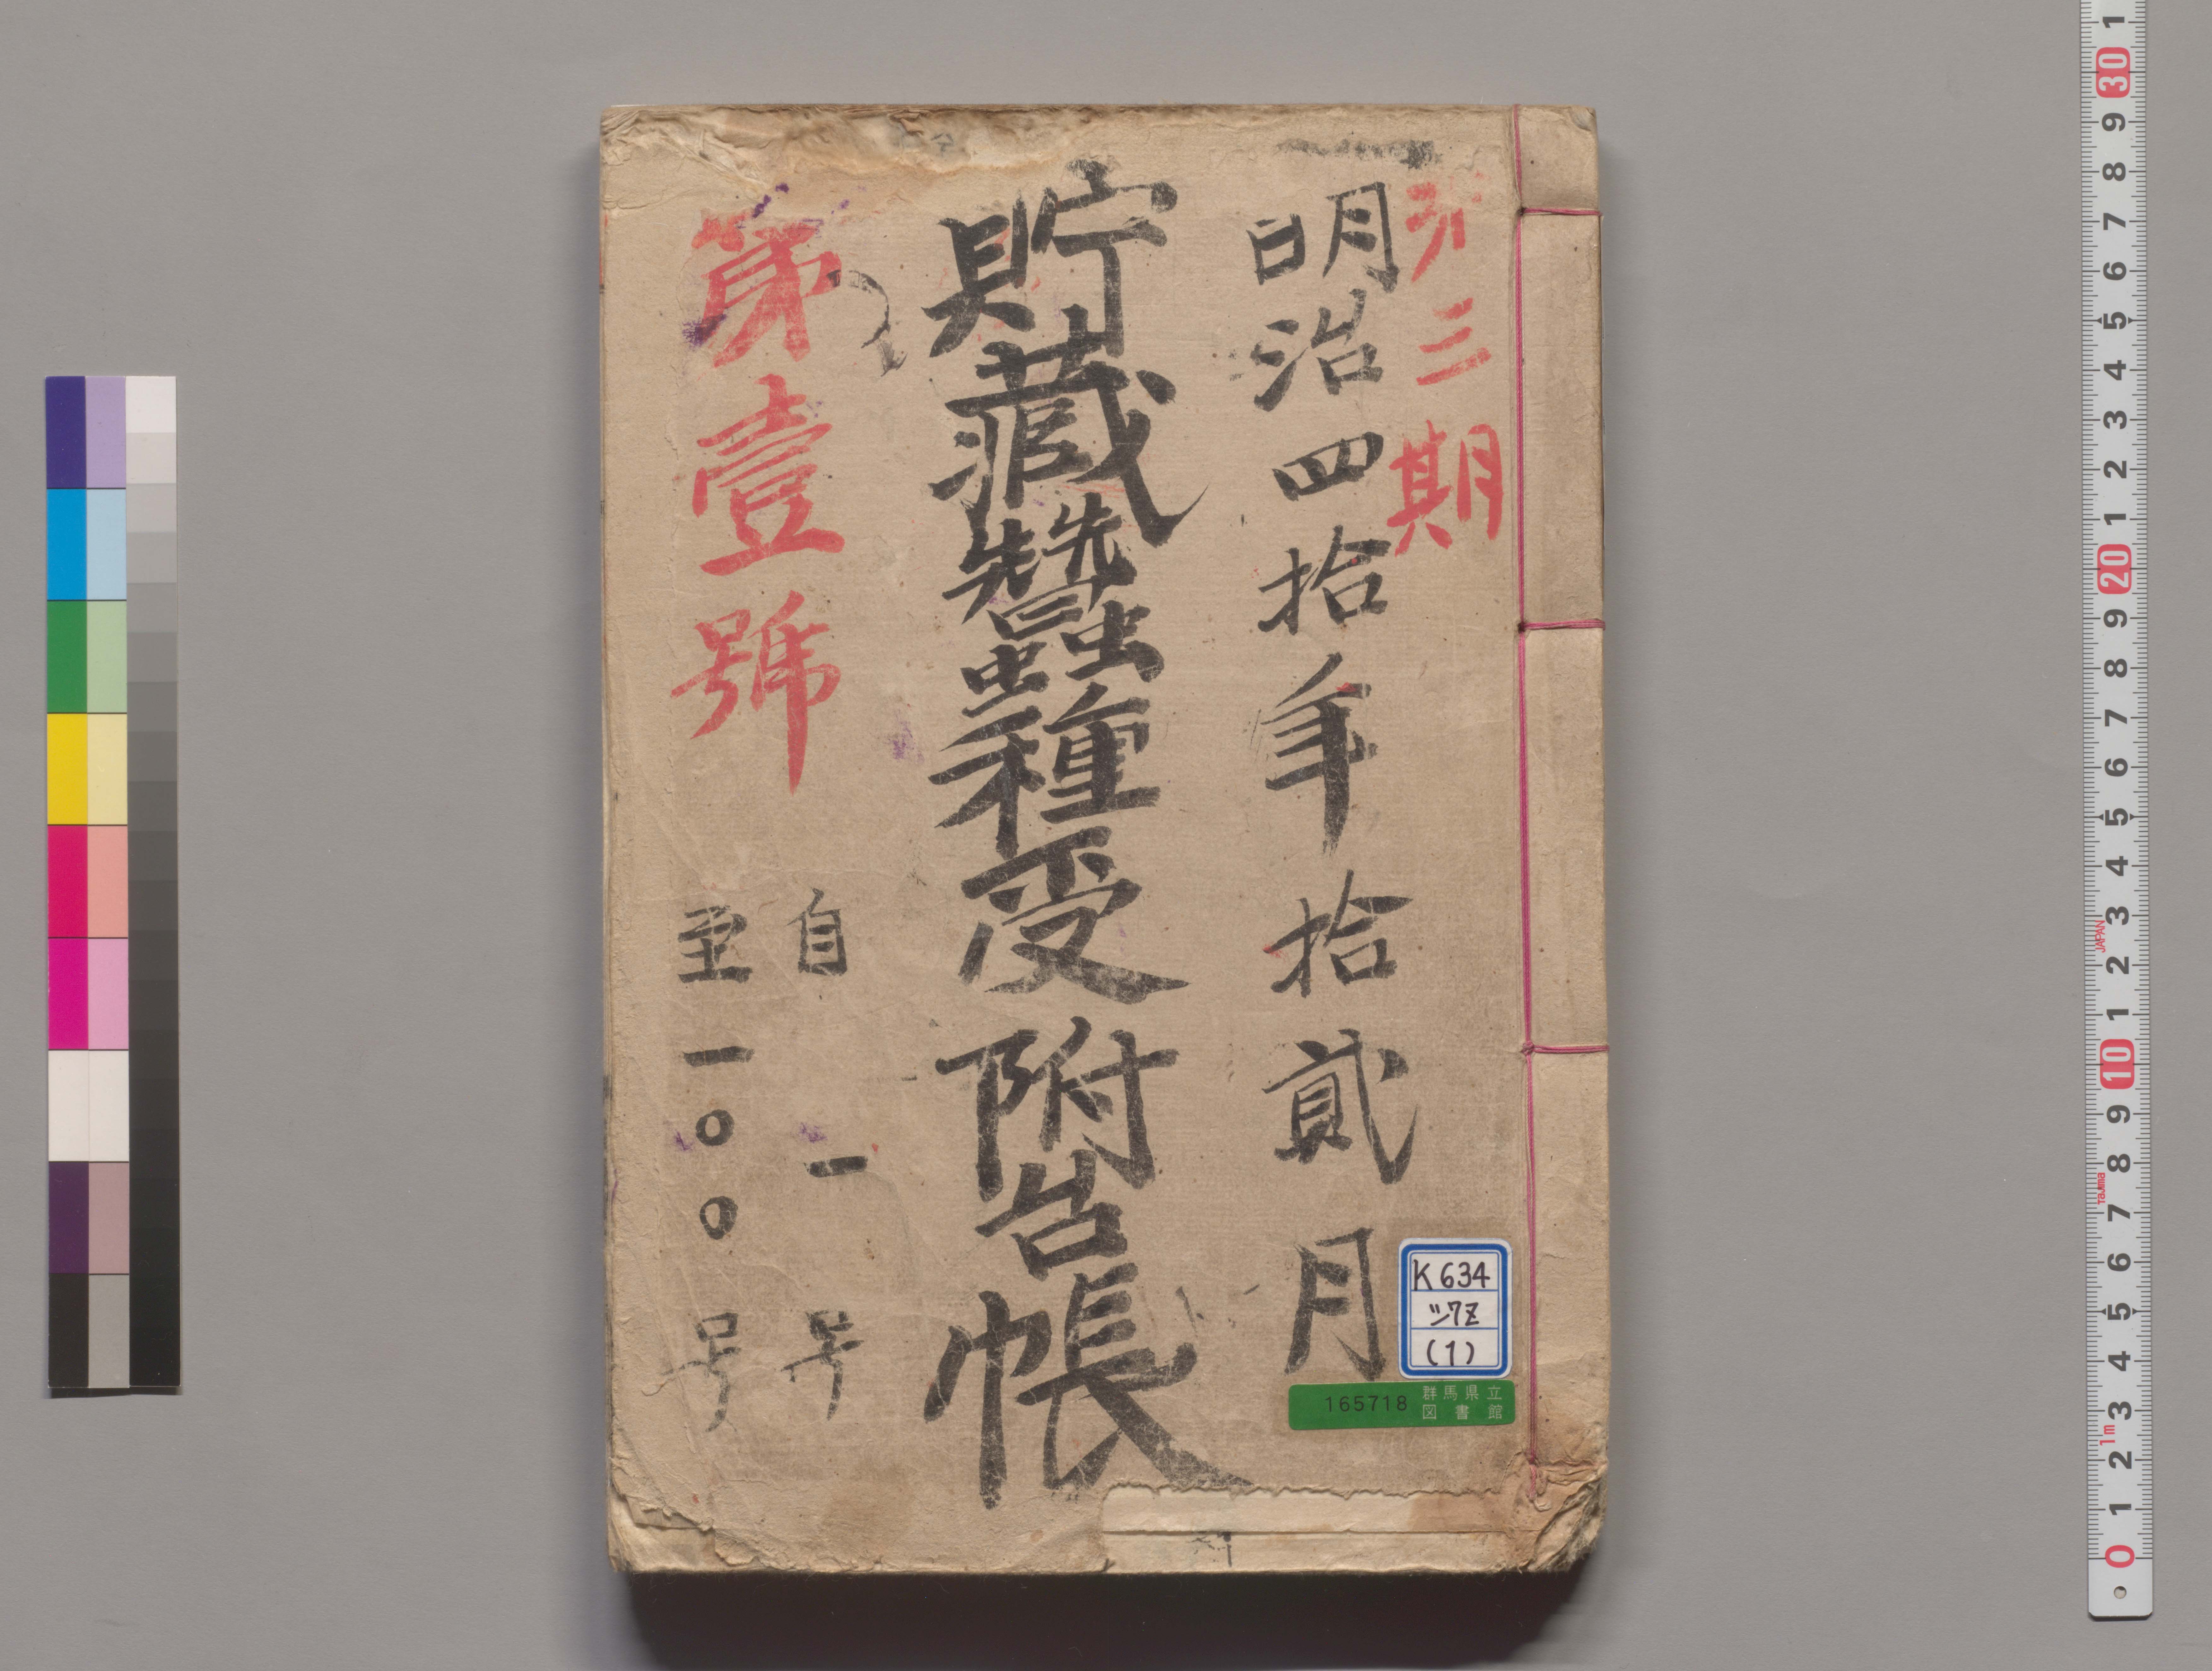 第三期
明治四拾年拾貳月
貯藏蠶種受附台帳
第壹號
自一号
至一〇〇号
K634
シ7Z
(1)
165718 群馬県立図書館